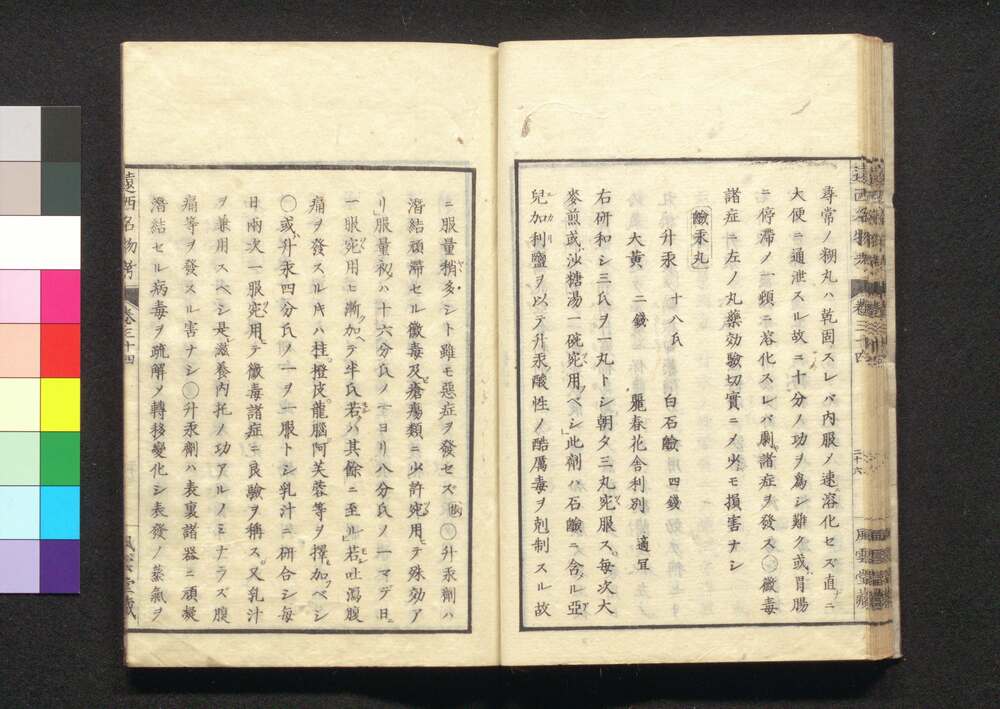 尋常ノ糊丸ハ乾固スレバ内服〆速溶化セズ直ニ
大便ニ通泄スル故ニ十分ノ功ヲ為シ難ク或胃腸
ニ停滞ノ一頓ニ溶化スレバ劇諸症ヲ發ス○黴毒
諸症ニ左ノ丸藥効驗切實ニ〆少モ損害ナシ
鹼汞丸
升汞 十八氏 白石鹼 四錢
大黄 二錢 麗春花舎利別 適宜
右研和シ三氏ヲ一丸トシ朝夕三丸宛服ス毎次大
麥煎或沙糖湯一碗宛用ベシ此劑ハ石鹼ニ含ル亞
兒加利鹽ヲ以テ升汞酸性ノ酷厲毒ヲ剋制スル故
遠西名物考 卷三十四 二十六 風雲堂藏
ニ服量稍多シト雖モ惡症ヲ發セズ ○升汞劑ハ
潜結頑滞セル黴毒及瘡瘍類ニ少許宛用テ殊効ア
リ服量初ハ十六分氏ノ一ヨリ八分氏ノ一マデ日ニ
一服宛用ヒ漸加ヘテ半氏若ハ其餘ニ至ル若吐瀉腹
痛ヲ發スルキハ桂橙皮龍腦阿芙蓉等ヲ擇加ベシ
○或升汞四分氏ノ一ヲ一服トシ乳汁ニ研合シ毎
日兩次一服宛用テ黴毒諸症ニ良驗ヲ稱ス又乳汁
ヲ兼用スベシ是滋養内托ノ功アルノミナラズ腹
痛等ヲ發スル害ナシ○升汞劑ハ表裏諸器ニ頑凝
潜結セル病毒ヲ疏解〆轉移變化シ表發ノ蒸氣ヲ
遠西名物考 卷三十四 風雲堂藏